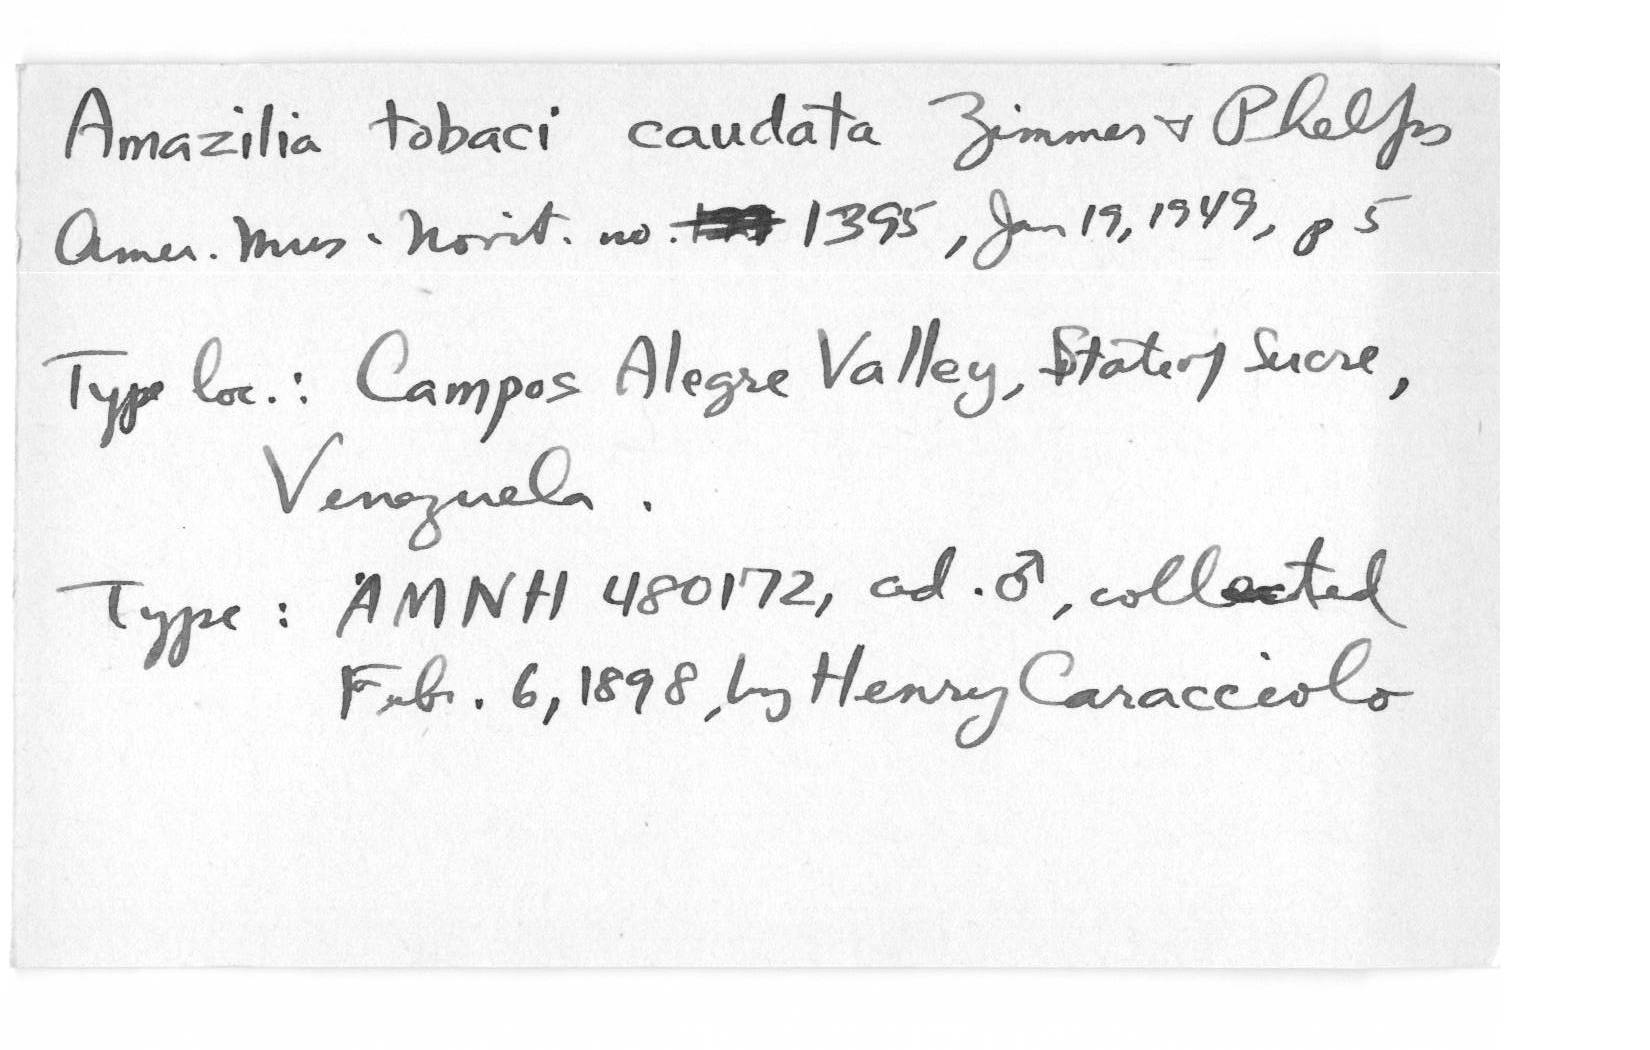 Amazilia tobaci caudata Zimmer & Phelps
Amer. Mus. Novit. no. 1395, Jan 19, 1949, p 5
Type loc.: Campos Alegre Valley, State of Sucre,
Venezuela.
Type: AMNH 480172, ad. ♂, collected
Feb. 6, 1898, by Henry Caracciolo